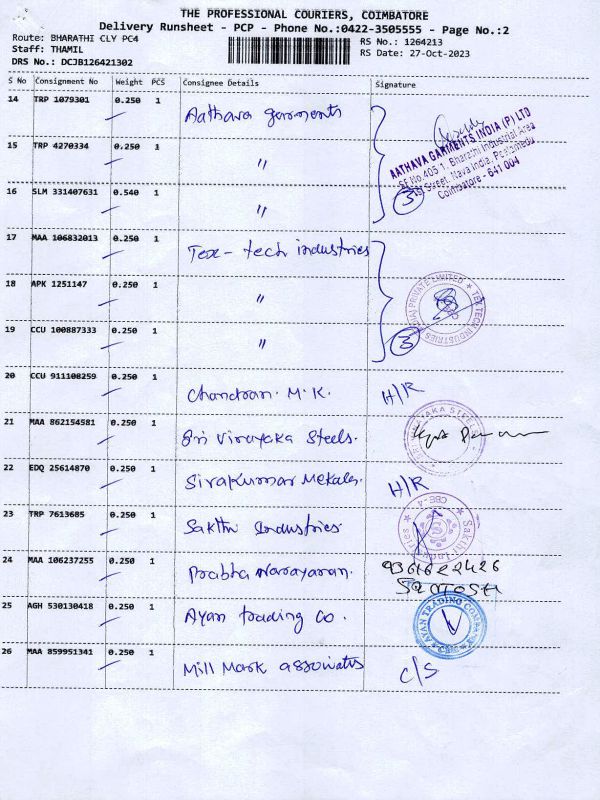 THE PROFESSIONAL COURIERS, COIMBATORE
Delivery Runsheet - PCP - Phone No.:0422-3505555 - Page No.:2
Route: BHARATHI CLY PC4
RS No.: 1264213
Staff: THAMIL
RS Date: 27-Oct-2023
DRS No.: DCJB126421302
S No Consignment No Weight PCS Consignee Details Signature
14 TRP 1079301 0.250 1 Aathava garments
AATHAVA GARMENTS INDIA (P) LTD
SF No 405 1, Bharathi Industrial Area
Street, Nava India, Peelamedu
Coimbatore - 641 004
15 TRP 4270334 0.250 1 "
16 SLM 331407631 0.540 1 " 3
17 MAA 106832013 0.250 1 Tex-tech industries
18 APK 1251147 0.250 1 "
TEX TECH INDUSTRIES PRIVATE LIMITED
19 CCU 100887333 0.250 1 " 3
20 CCU 911108259 0.250 1 Chandran. M.K. H/R
21 MAA 862154581 0.250 1 Sri Vinayaka Steels.
22 EDQ 25614870 0.250 1 Sivakumar Mekala H/R
23 TRP 7613685 0.250 1 Sakthi Industries
Sakthi Industries CBE-4
24 MAA 106237255 0.250 1 Prabha Narayanan.
SANTOSH
25 AGH 530130418 0.250 1 Ayan trading Co.
AYAN TRADING COMPANY
26 MAA 859951341 0.250 1 Mill Mark associates C/S